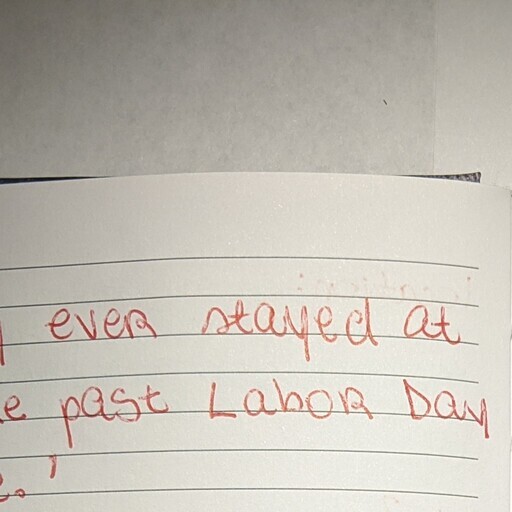 ever stayed at
e past Labor Day
.'